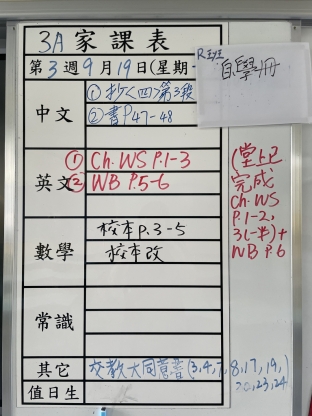 3A家課表
第3週9月19日(星期一
R班
自學冊
中文
①抄<四>第3段
②書P47-48
英文
① Ch. WS P.1-3
② WB P.5-6
(堂上已
完成
Ch. WS
P.1-2,
3(一半)+
WB P.6
數學
校本P.3-5
校本改
常識
其它
交教大同意書(3,4,7,8,17,19,
20,23,24)
值日生